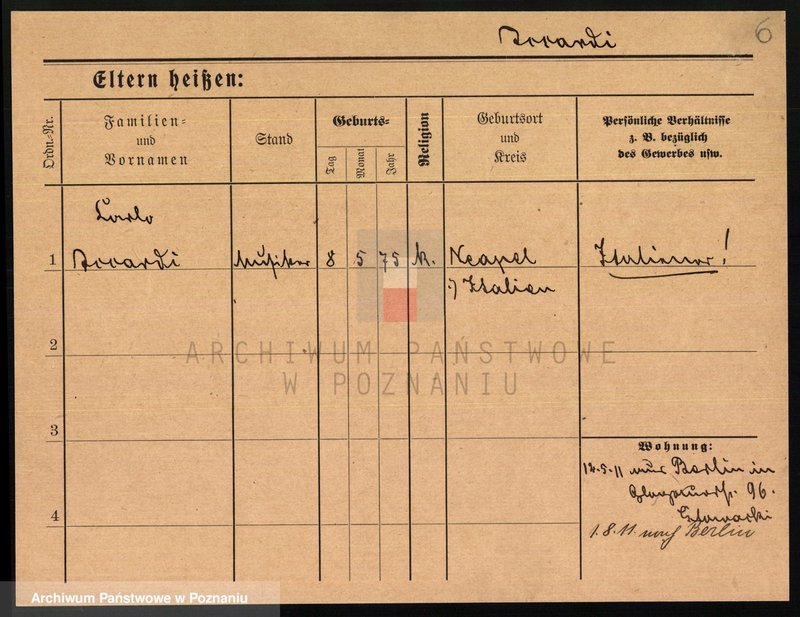 6
Eltern heißen:
Ordn.-Nr.
Familien-
und
Vornamen
Stand
Geburts-
Tag
Monat
Jahr
Religion
Geburtsort
und
Kreis
Persönliche Verhältnisse
z. B. bezüglich
des Gewerbes usw.
Carlo
1
Musiker 8 5 75 k. Neapel Italiener!
Italien
ARCHIWUM PAŃSTWOWE
W POZNANIU
2
3
4
Wohnung:
12.5.11 aus Berlin in
96.
1.8.11 nach Berlin
Archiwum Państwowe w Poznaniu